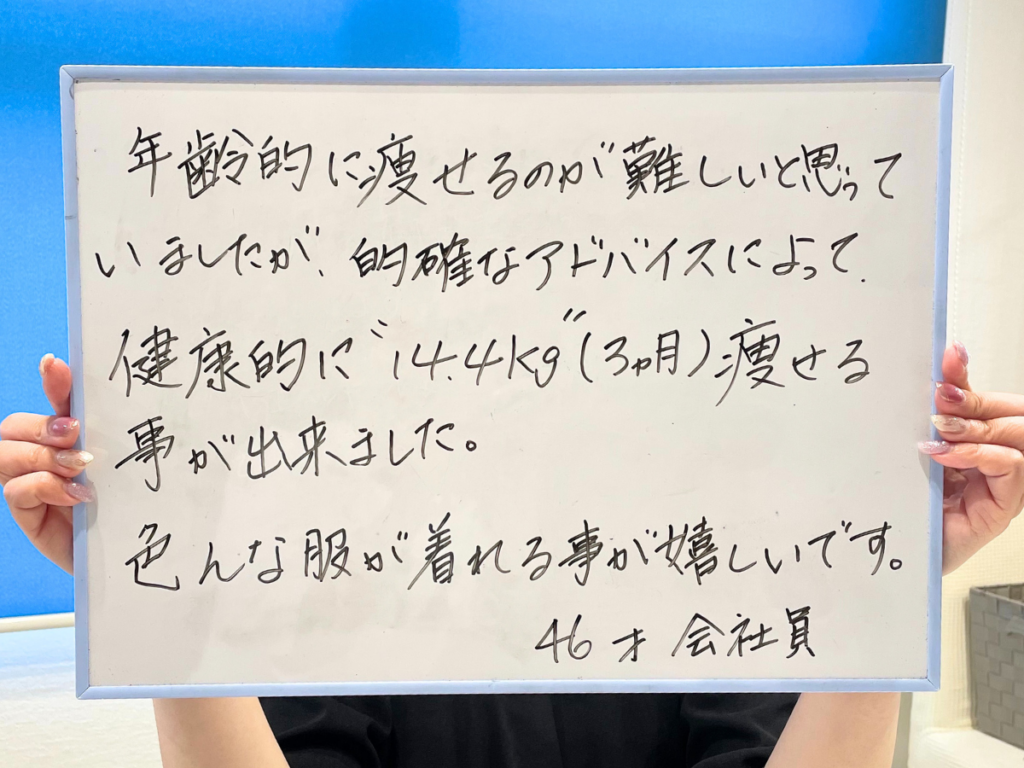 年齢的に痩せるのが難しいと思って
いましたが、的確なアドバイスによって、
健康的に“14.4kg”(3ヵ月)痩せる
事が出来ました。
色んな服が着れる事が嬉しいです。
46才 会社員